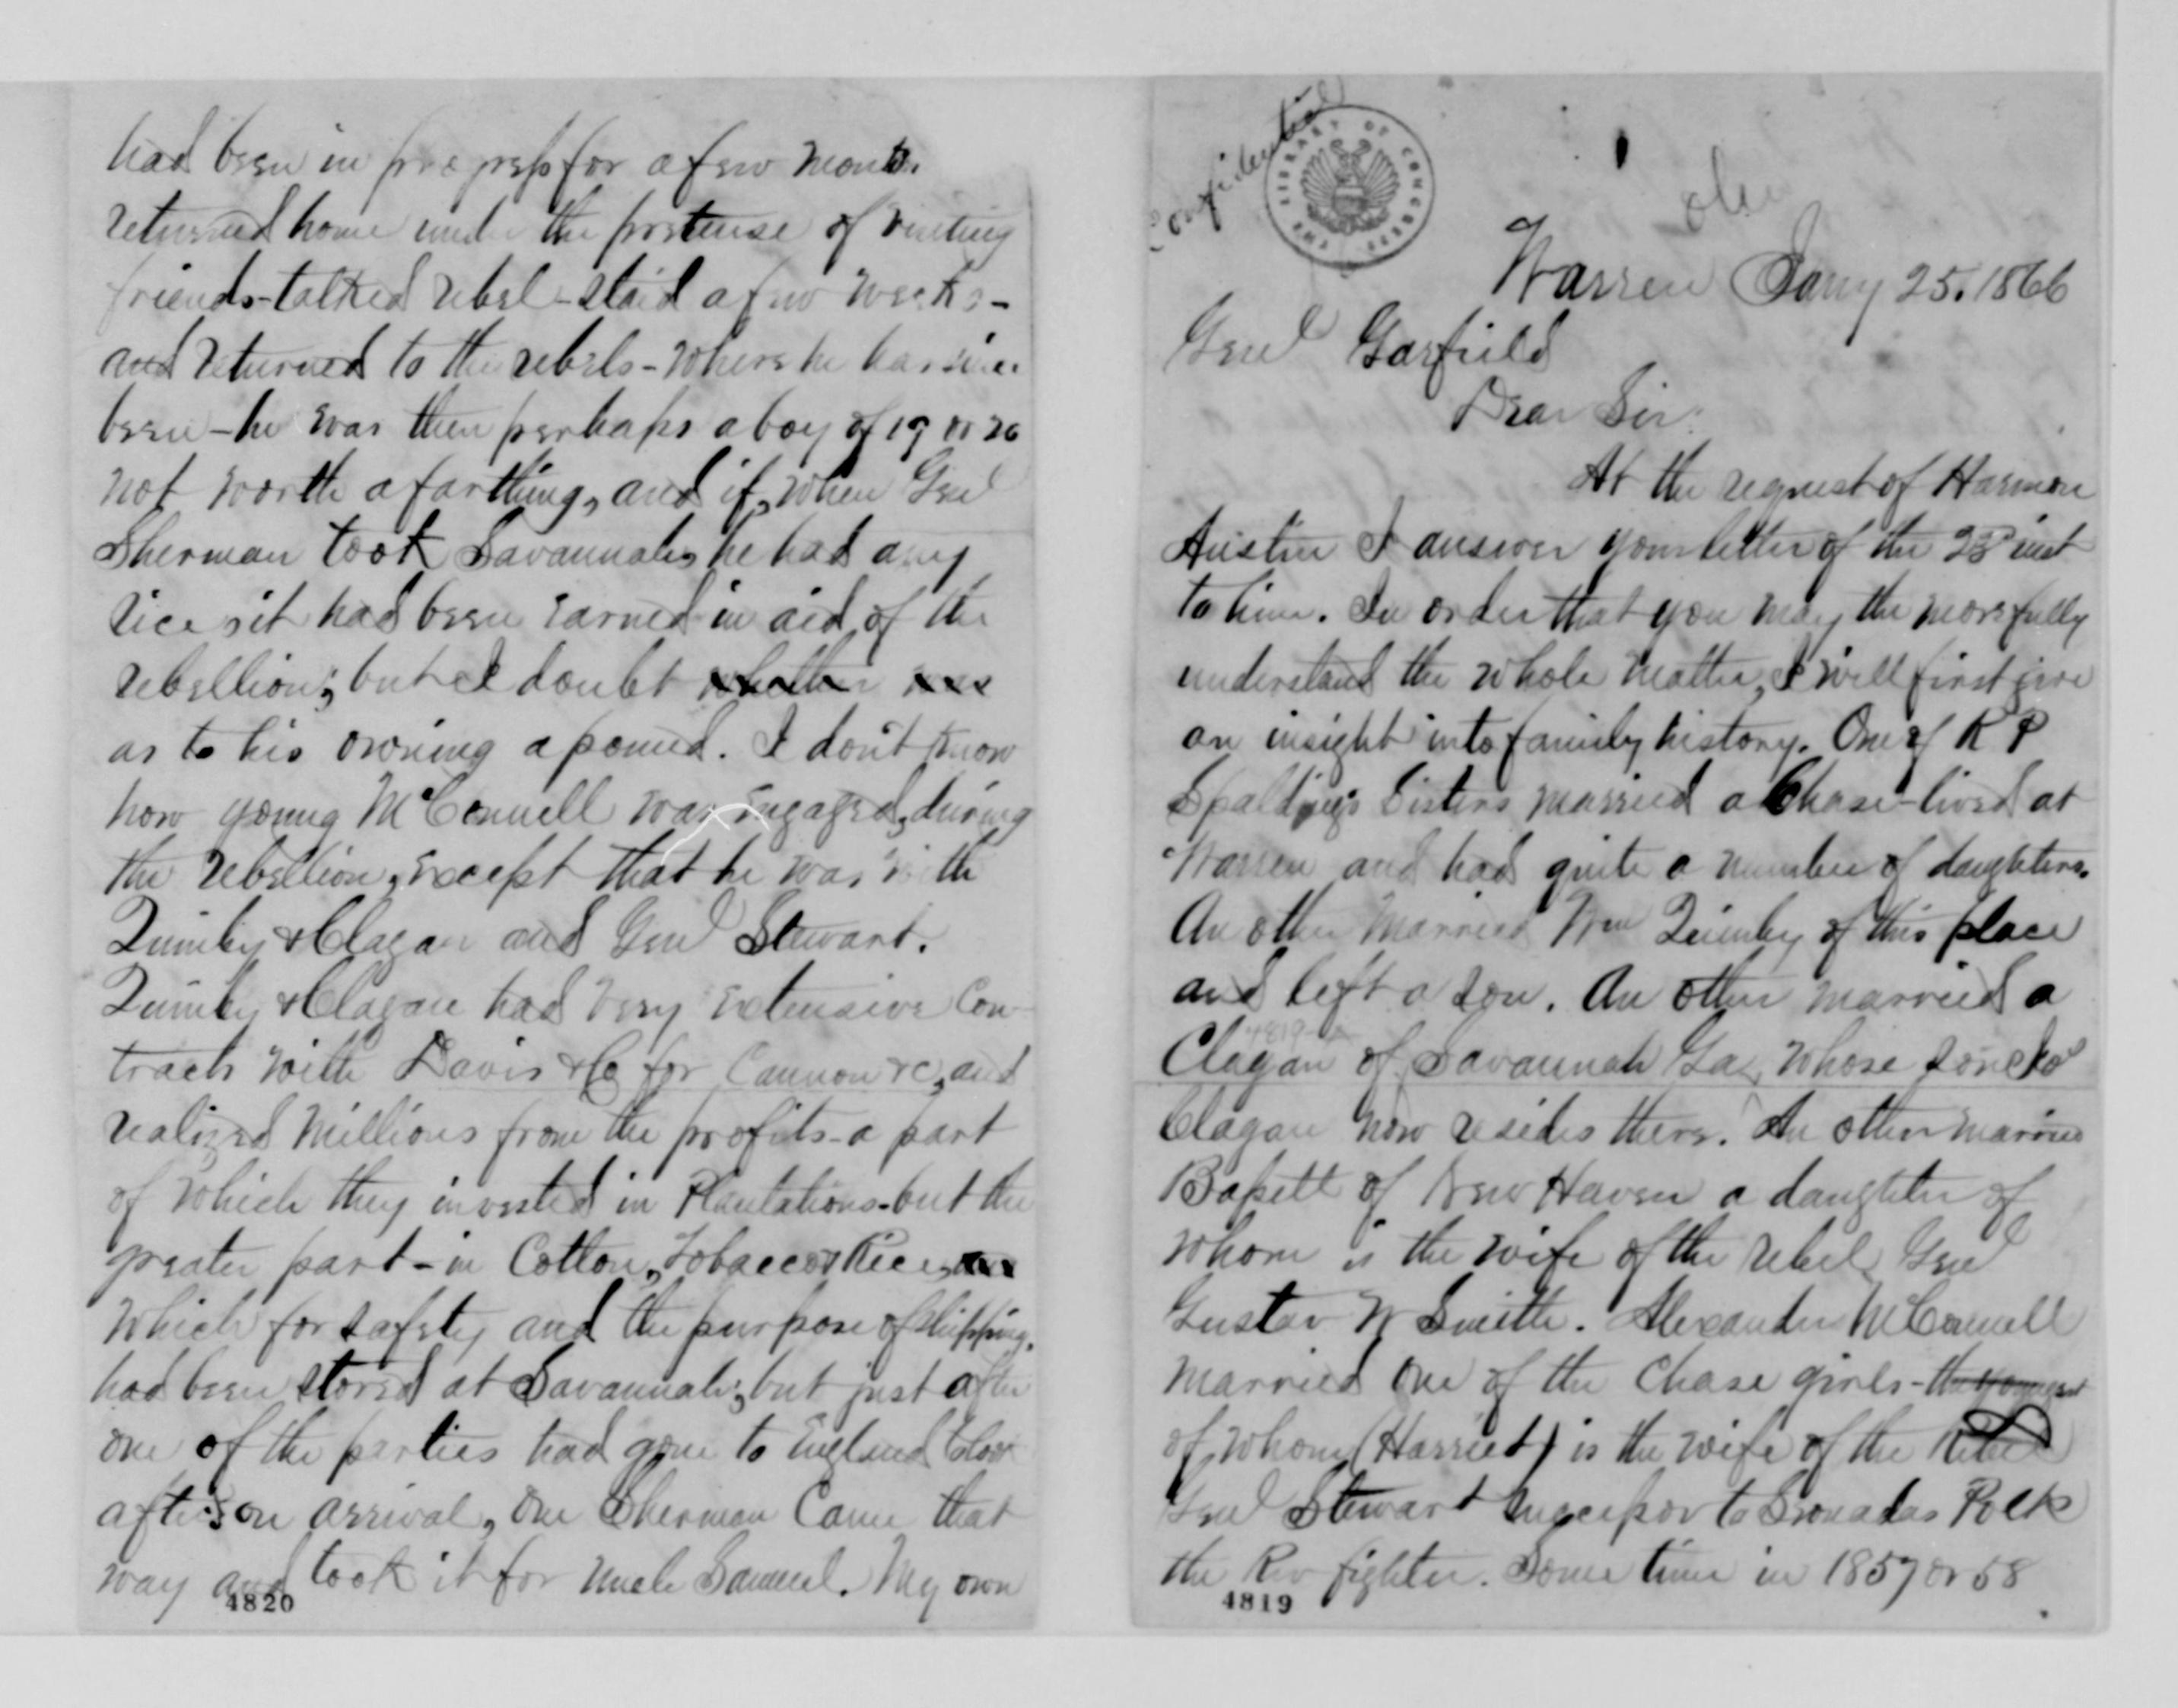 had been in progress for a few months.
returned home under the pretense of visiting
friends - talked rebel - staid a few weeks -
and returned to the rebels - where he has since
been - he was then perhaps a boy of 19 or 20
not worth a farthing, and if, when Genl
Sherman took Savannah, he had any
rice, it had been earned in aid of the
rebellion; but I doubt whether
as to his owning a pound. I don't know
how young McConnell was engaged, during
the rebellion, except that he was with
Quimby & Clagan and Genl Stewart.
Quimby & Clagan had very extensive Con-
tracts with Davis & Co for Cannon &c, and
realized millions from the profits - a part
of which they invested in Plantations - but the
greater part - in Cotton, Tobacco & Rice,
which for safety and the purpose of shipping,
had been stored at Savannah; but just after
one of the parties had gone to England to look
after its on arrival, one Sherman Came that
way and took it for Uncle Samuel. My own
4820
Confidential
THE LIBRARY OF CONGRESS
Warren Jany 25. 1866
Genl Garfield
Dear Sir.
At the request of Harmon
Austin I answer your letter of the 23d inst
to him. In order that you may the more fully
understand the whole matter, I will first give
an insight into family history. One of R P
Spalding's Sisters married a Chase - lived at
Warren and had quite a number of daughters.
An other married Wm Quimby of this place
and left a son. An other married a
Clagan of Savannah Ga, whose son
Clagan now resides there. An other married
Bassett of New Haven a daughter of
whom is the wife of the rebel Genl
Gustav W Smith. Alexander McConnell
married one of the Chase girls - the youngest
of whom (Harriet) is the wife of the Rebel
Genl Stewart Successor to Leonadas Polk
the Rev fighter. Some time in 1857 or 58
4819